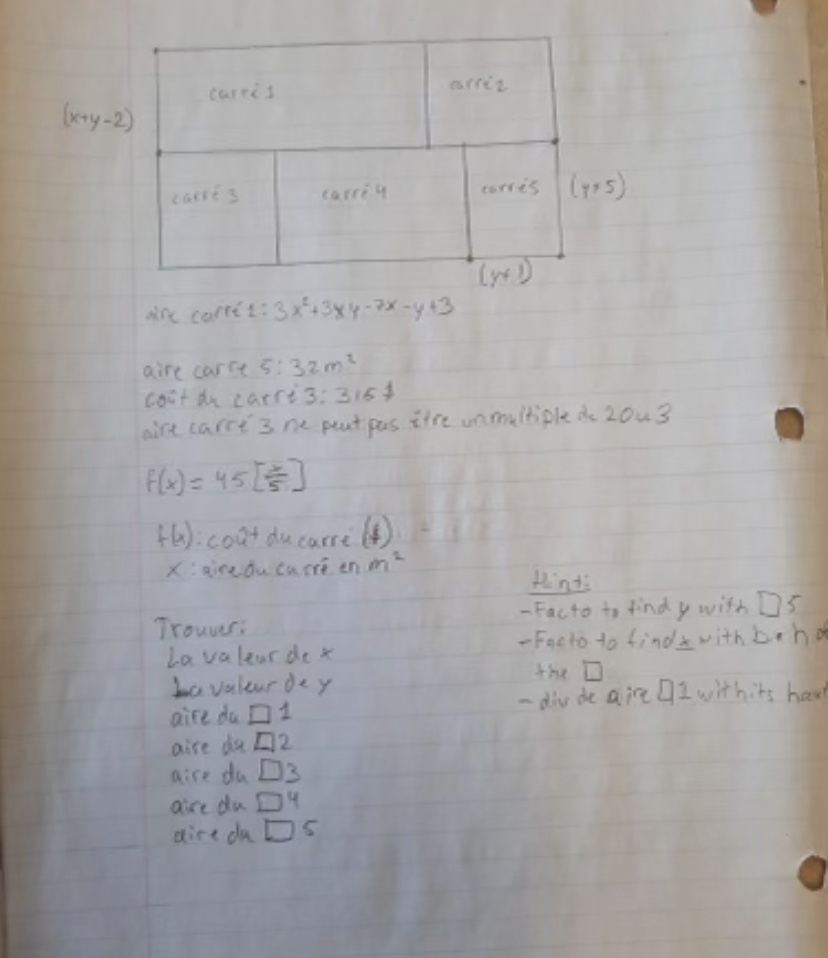 carré 1
carré 2
(x+y-2)
carré 3
carré 4
carré 5
(y+5)
(y+1)
aire carré 1: 3x²+3xy-7x-y+3
aire carre 5: 32m²
coût du carré 3: 315 $
aire carré 3 ne peut pas être un multiple de 2 ou 3
f(x) = 45[x/5]
f(x): coût du carré ($)
x: aire du carré en m²
Hint:
-Facto to find y with □5
-Facto to find x with b·h
the □
-div de aire □1 with its haut
Trouver:
La valeur de x
La valeur de y
aire du □ 1
aire du □2
aire du □3
aire du □4
aire du □ 5